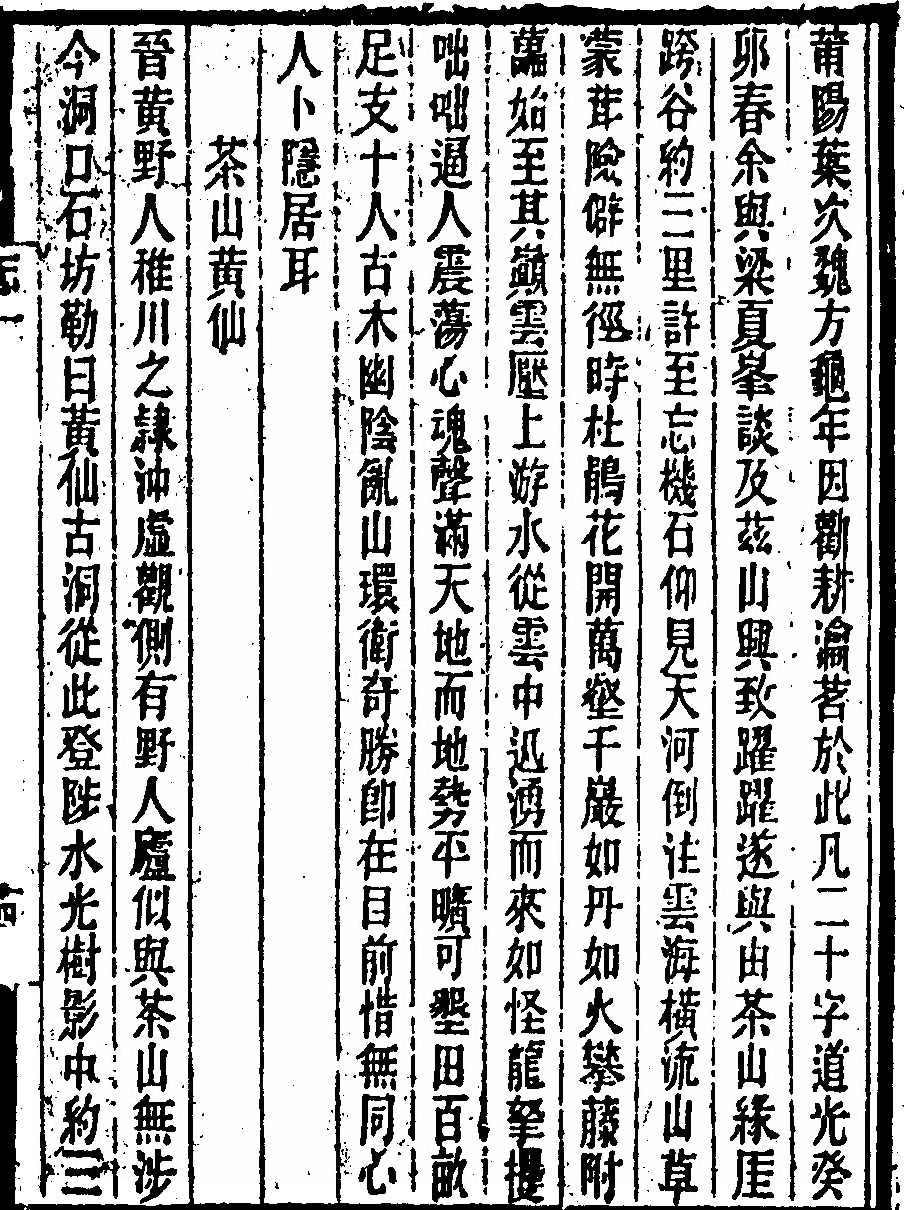 莆陽葉次魏方龜年因勸耕瀹茗於此凡二十字道光癸
卯春余與梁夏峯談及茲山興致躍躍遂與由茶山緣厓
跨谷約三里許至忘機石仰見天河倒注雲海橫流山草
蒙茸險僻無徑時杜鵑花開萬壑千巖如丹如火攀藤附
葛始至其巔雲壓上游水從雲中迅湧而來如怪龍拏攫
咄咄逼人震蕩心魂聲滿天地而地勢平曠可墾田百畝
足支十人古木幽陰亂山環衛奇勝即在目前惜無同心
人卜隱居耳
茶山黃仙
晉黃野人稚川之隸沖虛觀側有野人廬似與茶山無涉
今洞口石坊勒曰黃仙古洞從此登陟水光樹影中約三